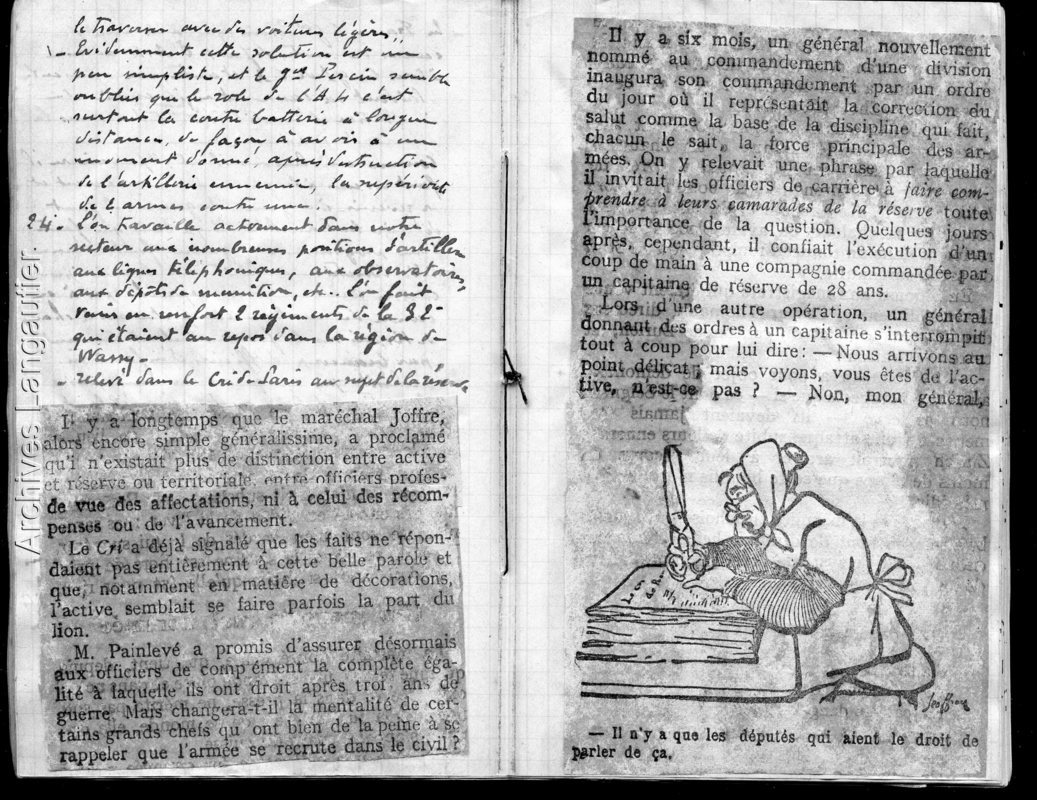 le traverser avec des voitures légères,,
\- Evidemment cette solution est un
peu simpliste, et le gal Percin semble
oublier que le role de l'A L c'est
surtout la contre batterie à longue
distance, de façon à avoir à un
moment donné, après destruction
de l'artillerie ennemie, la supériorité
de 2 armes contre une.
24. L'on travaille activement dans notre
secteur aux nombreuses positions d'artillerie
aux lignes téléphoniques, aux observatoires,
aux dépôts de munition, etc.. L'on fait
venir en renfort 2 régiments de la
qui étaient au repos dans la région de
Wassy.
- relevé dans le Cri de Paris au sujet de la réserve
Il y a longtemps que le maréchal Joffre,
alors encore simple généralissime, a proclamé
qu'i n'existait plus de distinction entre active
et réserve ou territoriale, entre officiers profes-
de vue des affectations, ni à celui des récom-
penses ou de l'avancement.
Le Cri a déjà signalé que les faits ne répon-
daient pas entièrement à cette belle parole et
que, notamment en matière de décorations,
l'active semblait se faire parfois la part du
lion.
M. Painlevé a promis d'assurer désormais
aux officiers de comp ément la complète éga-
lité à laquelle ils ont droit après troi ans de
guerre. Mais changera-t-il la mentalité de cer-
tains grands chefs qu ont bien de la peine à se
rappeler que l'armée se recrute dans le civil ?
Archives Langautier.
Il y a six mois, un général nouvellement
nommé au commandement d'une division
inaugura son commandement par un ordre
du jour où il représentait la correction du
salut comme la base de la discipline qui fait,
chacun le sait, la force principale des ar-
mées. On y relevait une phrase par laquelle
il invitait les officiers de carrière à faire com-
prendre à leurs camarades de la réserve toute
l'importance de la question. Quelques jours
après, cependant, il confiait l'exécution d'un
coup de main à une compagnie commandée par
un capitaine de réserve de 28 ans.
Lors d'une autre opération, un général
donnant des ordres à un capitaine s'interrompit
tout à coup pour lui dire : — Nous arrivons au
point délicat ; mais voyons, vous êtes de l'ac-
tive, n'est-ce pas ? — Non, mon général,
— Il n'y a que les députés qui aient le droit de
parler de ça.